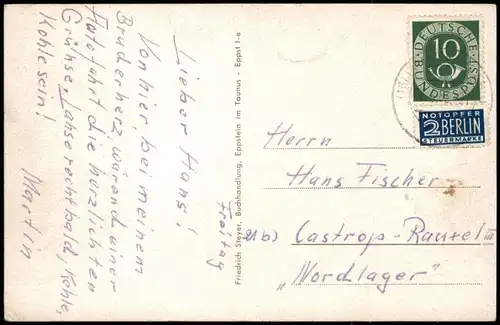 Freitag
Lieber Hans!
Von hier, bei meinem
Bruderherz, wärend einer
Autofahrt die herzlichsten
Grühse. Lahse recht bald, Kohle,
Kohle sein!
Martin
Friedrich Steyer, Buchhandlung, Eppstein im Taunus - Eppst 1-e
DEUTSCHE BUNDESPOST
10
NOTOPFER
2 BERLIN
STEUERMARKE
Herrn
Hans Fischer
21b) Castrop-Rauxel III
"Nordlager"